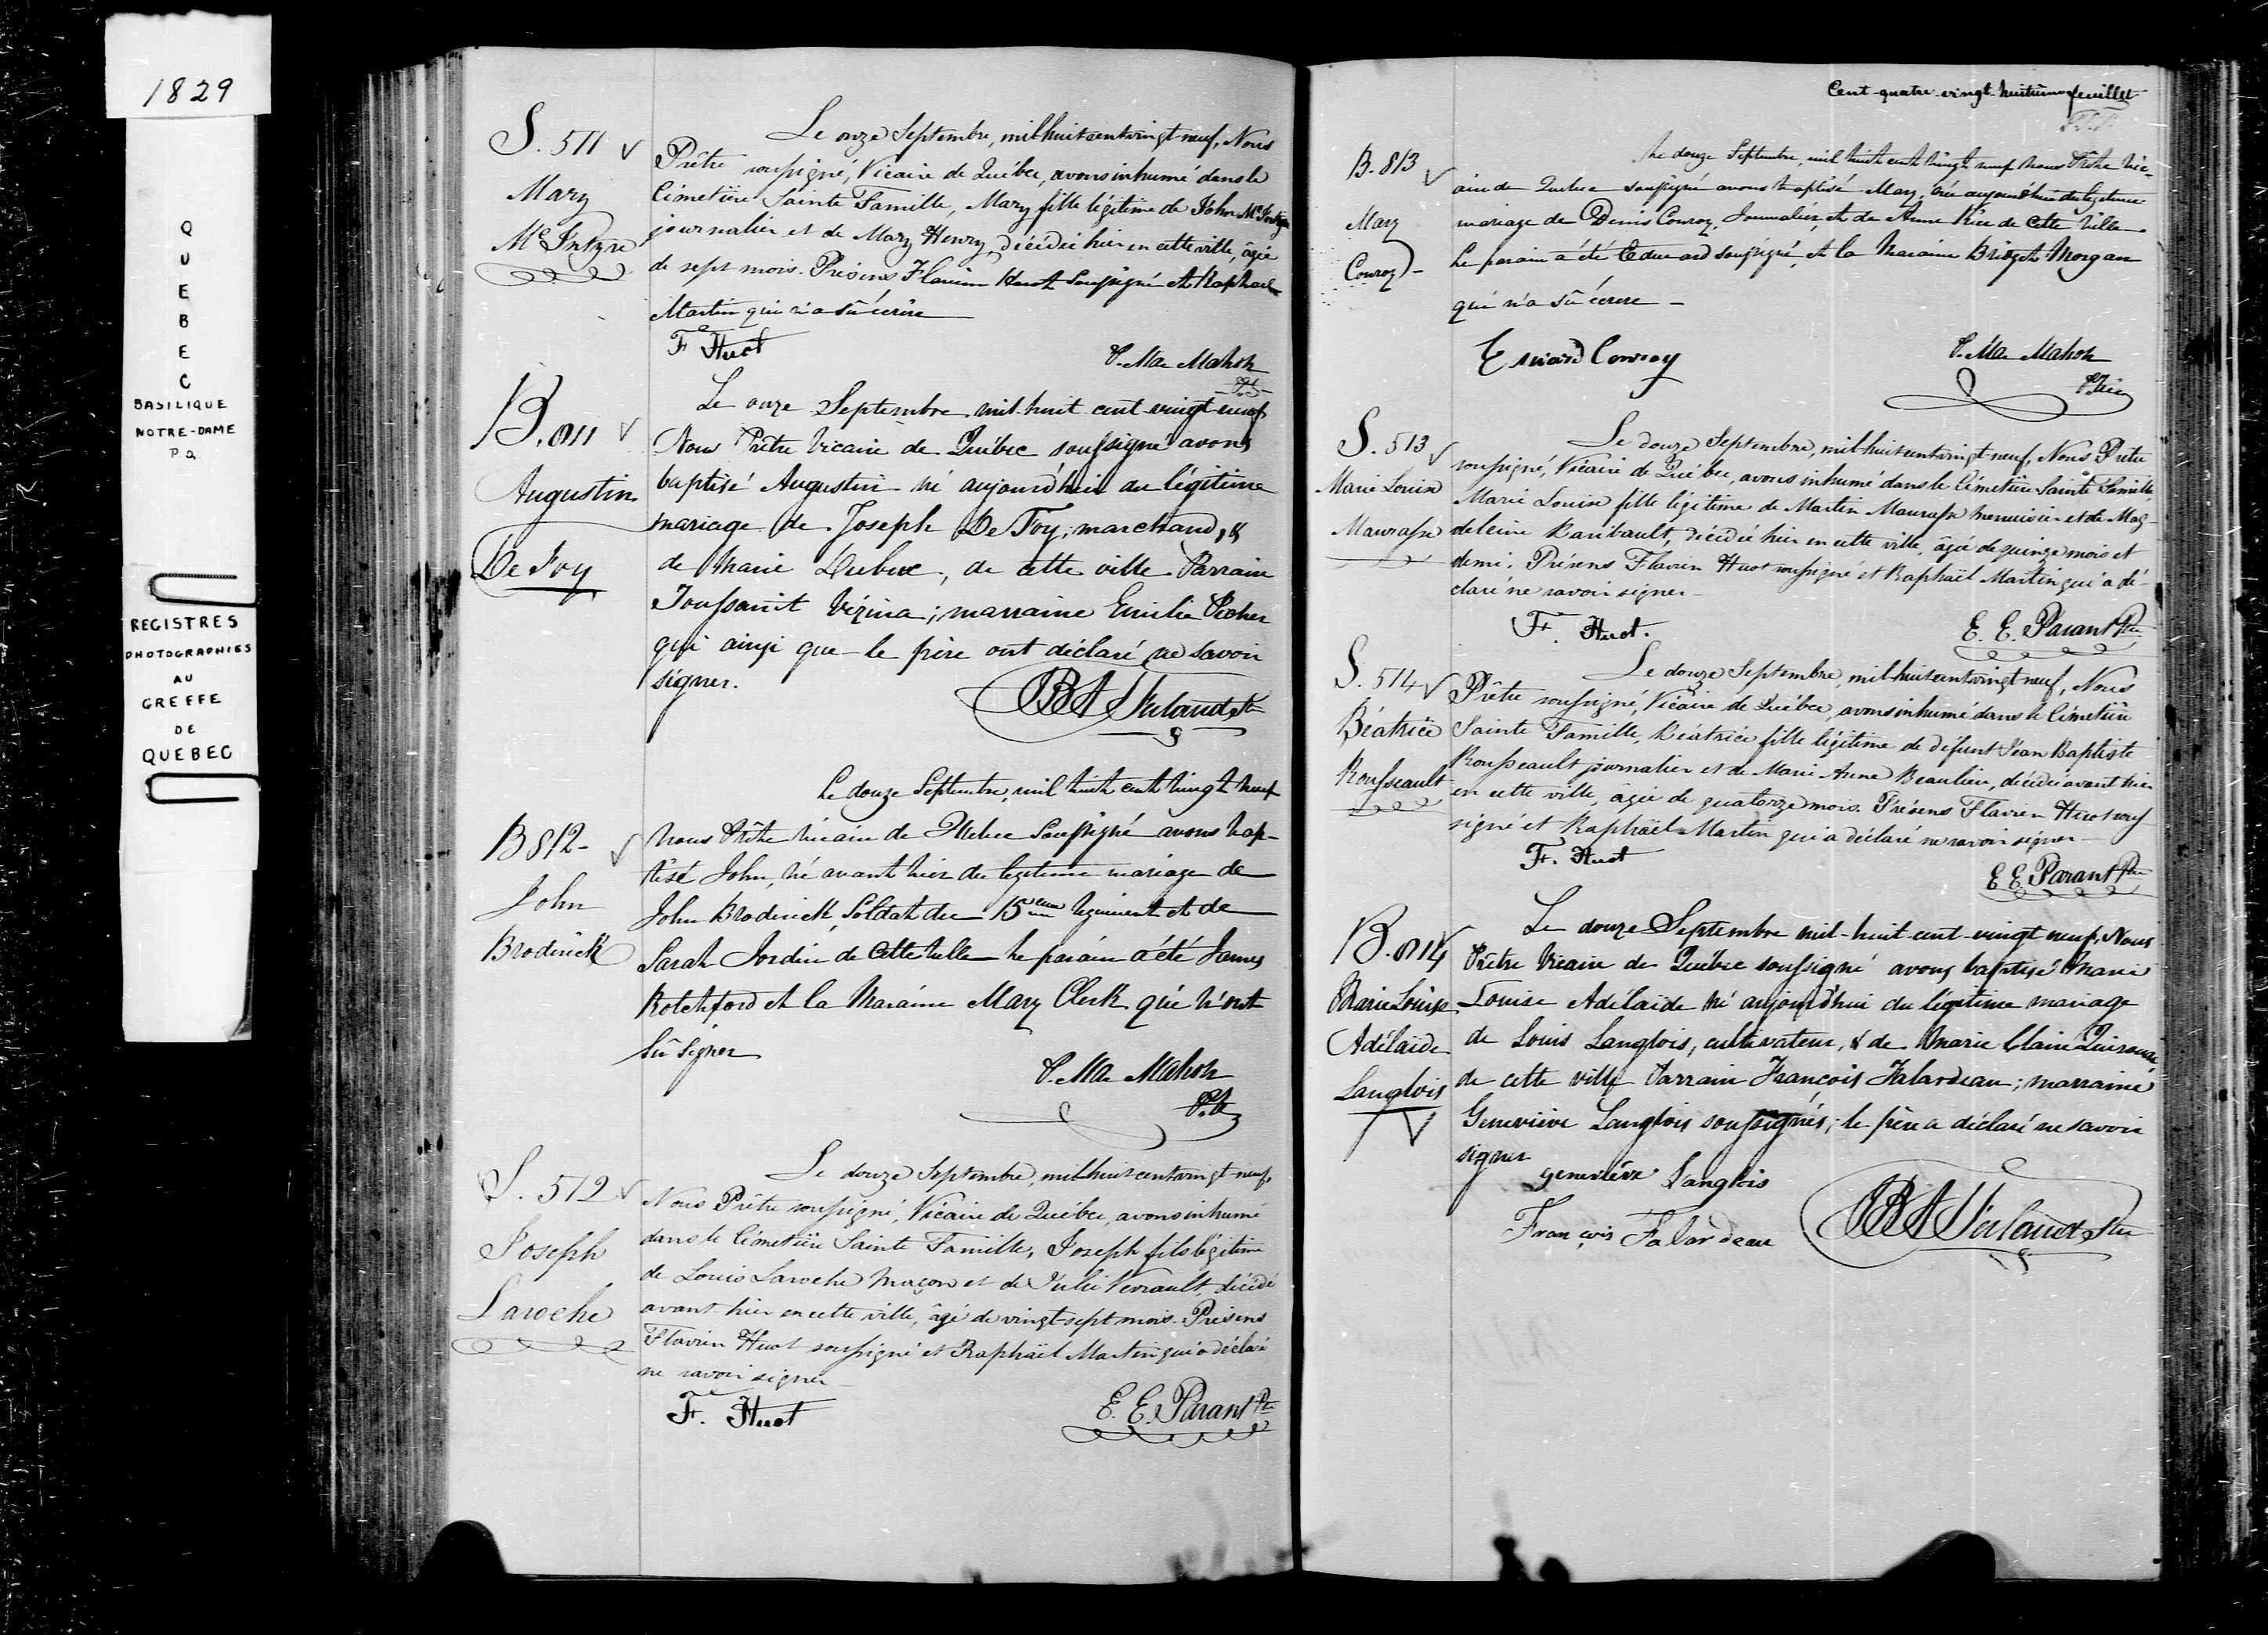 1829
QUEBEC
BASILIQUE
NOTRE-DAME
P.Q.
REGISTRES
PHOTOGRAPHIES
AU
GREFFE
DE
QUEBEC
S. 511
Mary
McIntyre
Le onze Septembre, mil huit cent vingt-neuf, Nous
Prêtre soussigné, Vicaire de Québec, avons inhumé dans le
Cimetière Sainte Famille, Mary fille légitime de John McIntyre
journalier et de Mary Henry, décédée hier en cette ville, âgée
de sept mois. Présens Flavien Huot soussigné et Raphael
Martin qui n'a sû écrire
F Huot
P. Mc Mahon
B. 811
Augustin
De Foy
Le onze Septembre mil-huit cent-vingt-neuf,
Nous Prêtre Vicaire de Québec soussigné avons
baptisé Augustin né aujourd'hui du légitime
mariage de Joseph De Foy, marchand, &
de Marie Dubuc, de cette ville Parrain
Toussaint Vézina; marraine Emilie
qui ainsi que le père ont déclaré ne savoir
signer.
Ptre
B 812-
John
Broderick
Le douze Septembre, mil huit cent vingt neuf
Nous Prêtre Vicaire de Quebec Soussigné avons bap-
tisé John, né avant hier du legitime mariage de
John Broderick, Soldat du 15eme regiment et de
Sarah Jordin de Cette ville le parain a été James
Rotchford et la Maraine Mary Clerk qui n'ont
Sû Signer
P. Mc Mahon
S. 512
Joseph
Laroche
Le douze Septembre, mil huit cent vingt-neuf,
Nous Prêtre soussigné, Vicaire de Québec, avons inhumé
dans le Cimetière Sainte Famille, Joseph fils légitime
de Louis Laroche Maçon et de Julie Verrault, décédé
avant-hier en cette ville, âgé de vingt-sept mois. Présens
Flavien Huot soussigné et Raphaël Martin qui a déclaré
ne savoir signer
F. Huot
E. E. Parant Ptre
Cent-quatre-vingt-huitième feuillet
B. 813
Mary
Conroy
Le douze Septembre, mil huit cent vingt neuf Nous Prêtre Vic-
aire de Quebec soussigné avons baptisé Mary, née aujourd'hui du legitime
mariage de Denis Conroy, Journalier, et de Anne Rice de Cette Ville.
Le parain a été Edward soussigné, et la Maraine Briget Morgan
qui n'a sû écrire -
Edward Conroy
P. Mc Mahon
S. 513
Marie Louise
Maurasse
Le douze Septembre, mil huit cent vingt-neuf, Nous Prêtre
soussigné, Vicaire de Québec, avons inhumé dans le Cimetière Sainte Famille,
Marie Louise fille légitime de Martin Maurasse Menuisier et de Mag-
deleine Baribault, décédée hier en cette ville, âgée de quinze mois et
demi. Présens Flavien Huot soussigné et Raphaël Martin qui a dé-
claré ne savoir signer -
F. Huot.
E. E. Parant Ptre
S. 514
Béatrice
Rousseault
Le douze Septembre, mil huit cent vingt-neuf, Nous
Prêtre soussigné, Vicaire de Québec, avons inhumé dans le Cimetière
Sainte Famille, Béatrice fille légitime de défunt Jean Baptiste
Rousseault journalier et de Marie Anne Beaulieu, décédée avant hier
en cette ville, âgée de quatorze mois. Présens Flavien Huot sous
signé et Raphaël Martin qui a déclaré ne savoir signer -
F. Huot
E E. Parant Ptre
B. 814
Marie Louise
Adélaïde
Langlois
Le douze Septembre mil-huit-cent-vingt neuf, Nous
Prêtre Vicaire de Québec soussigné avons baptisé Marie
Louise Adélaïde né aujourd'hui du légitime mariage
de Louis Langlois, cultivateur, & de Marie Claire
de cette ville Parrain François Falardeau; marraine
Geneviève Langlois soussignés; le père a déclaré ne savoir
signer
geneviève Langlois
François Falardeau
Ptre